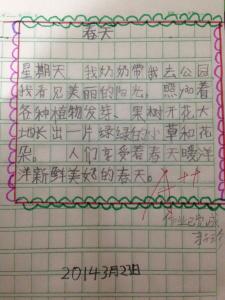 春天
星期天，我奶奶带我去公园
我看见美丽的阳光，照yào着
各种植物发芽、果树开花大
地长出一片绿绿的小草和花
朵。 人们享受着春天暖洋
洋新鲜美好的春天。
A++
作业已完成
2014年3月23日